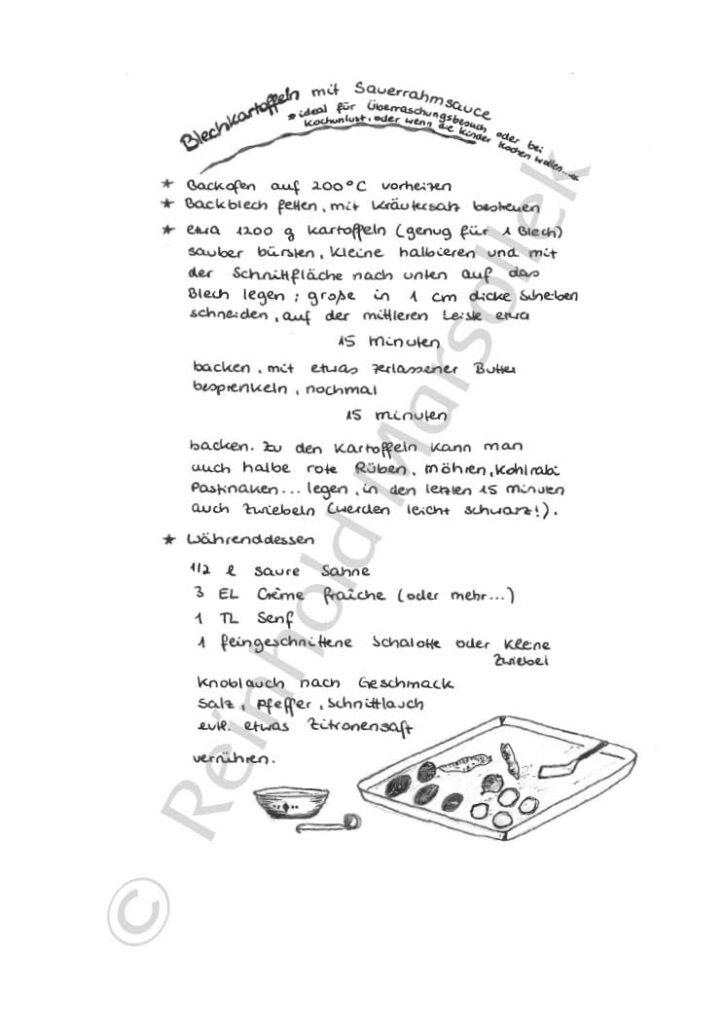 Blechkartoffeln mit Sauerrahmsauce
* ideal für Überraschungsbesuch oder bei
Kochunlust, oder wenn die Kinder kochen wollen...*
* Backofen auf 200°C vorheizen
* Backblech fetten, mit Kräutersalz bestreuen
* etwa 1200 g Kartoffeln (genug für 1 Blech)
sauber bürsten, kleine halbieren und mit
der Schnittfläche nach unten auf das
Blech legen; große in 1 cm dicke Scheiben
schneiden, auf der mittleren Leiste etwa
15 Minuten
backen, mit etwas zerlassener Butter
besprenkeln, nochmal
15 Minuten
backen. Zu den Kartoffeln kann man
auch halbe rote Rüben, Möhren, Kohlrabi
Pastinaken... legen, in den letzten 15 Minuten
auch Zwiebeln (werden leicht schwarz!).
* Währenddessen
1/2 l saure Sahne
3 EL Crème fraîche (oder mehr...)
1 TL Senf
1 feingeschnittene Schalotte oder kleine
Zwiebel
Knoblauch nach Geschmack
Salz, Pfeffer, Schnittlauch
evtl. etwas Zitronensaft
verrühren.
© Reinhold Marsollek